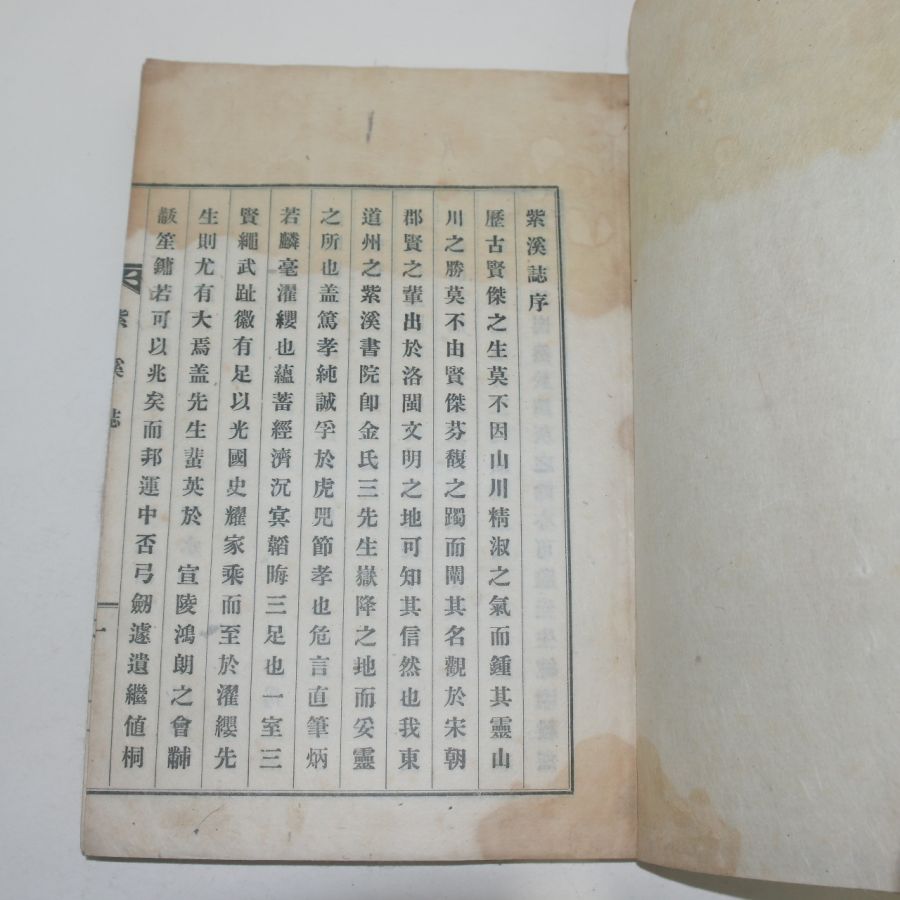 紫溪誌序
歷古賢傑之生莫不因山川精淑之氣而鍾其靈山
川之勝莫不由賢傑芬馥之躅而闡其名觀於宋朝
郡賢之輩出於洛閩文明之地可知其信然也我東
道州之紫溪書院卽金氏三先生嶽降之地而妥靈
之所也盖篤孝純誠孚於虎兕節孝也危言直筆炳
若麟毫濯纓也蘊蓄經濟沉冥韜晦三足也一室三
賢繩武趾徽有足以光國史耀家乘而至於濯纓先
生則尤有大焉盖先生蜚英於宣陵鴻朗之會黼
黻笙鏞若可以兆矣而邦運中否弓劒遽遺繼値桐
紫溪誌
一